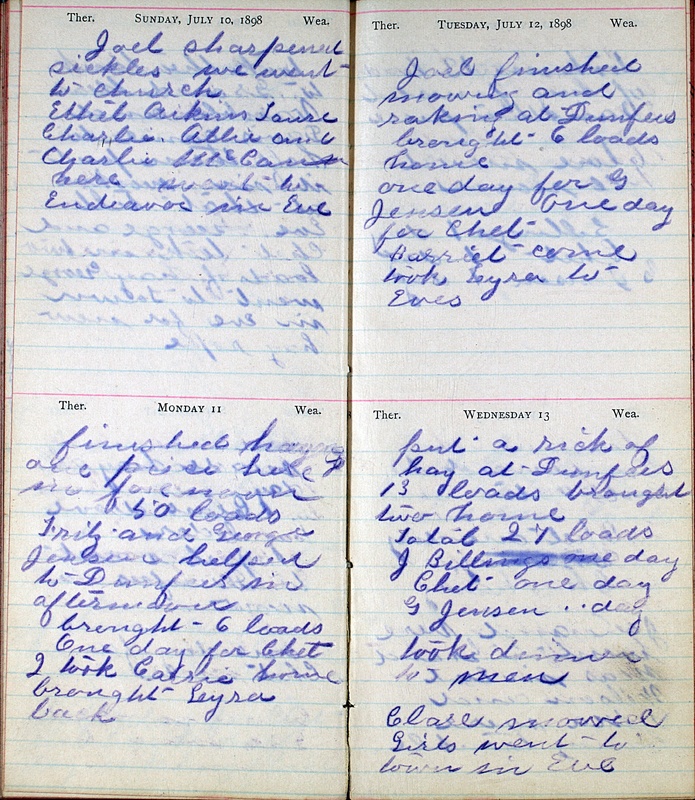 Ther. SUNDAY, JULY 10, 1898 Wea.
Joel sharpened
sickles we went
to church
Ethel Aikins Laura
Charlie. Allie and
Charlie McCann
here went to
Endeavor in Eve
Ther. MONDAY 11 Wea.
finished haying
one piece here
in forenoon
50 loads
Fritz and George
Jensen helped
to Dumfees in
afternoon
brought - 6 loads
One day for Chet
I took Carrie home
brought Leyra
back
Ther. TUESDAY, JULY 12, 1898 Wea.
Joel finished
mowing and
raking at Dumfees
brought 6 loads
home
one day for G
Jensen one day
for Chet
Harriet come
took Leyra to
Eves
Ther. WEDNESDAY 13 Wea.
put a rick of
hay at Dumfees
13 loads brought
two home
Total 27 loads
J Billings one day
Chet one day
G Jensen .. day
took dinner
to men
Clare mowed
Girls went to
town in Eve